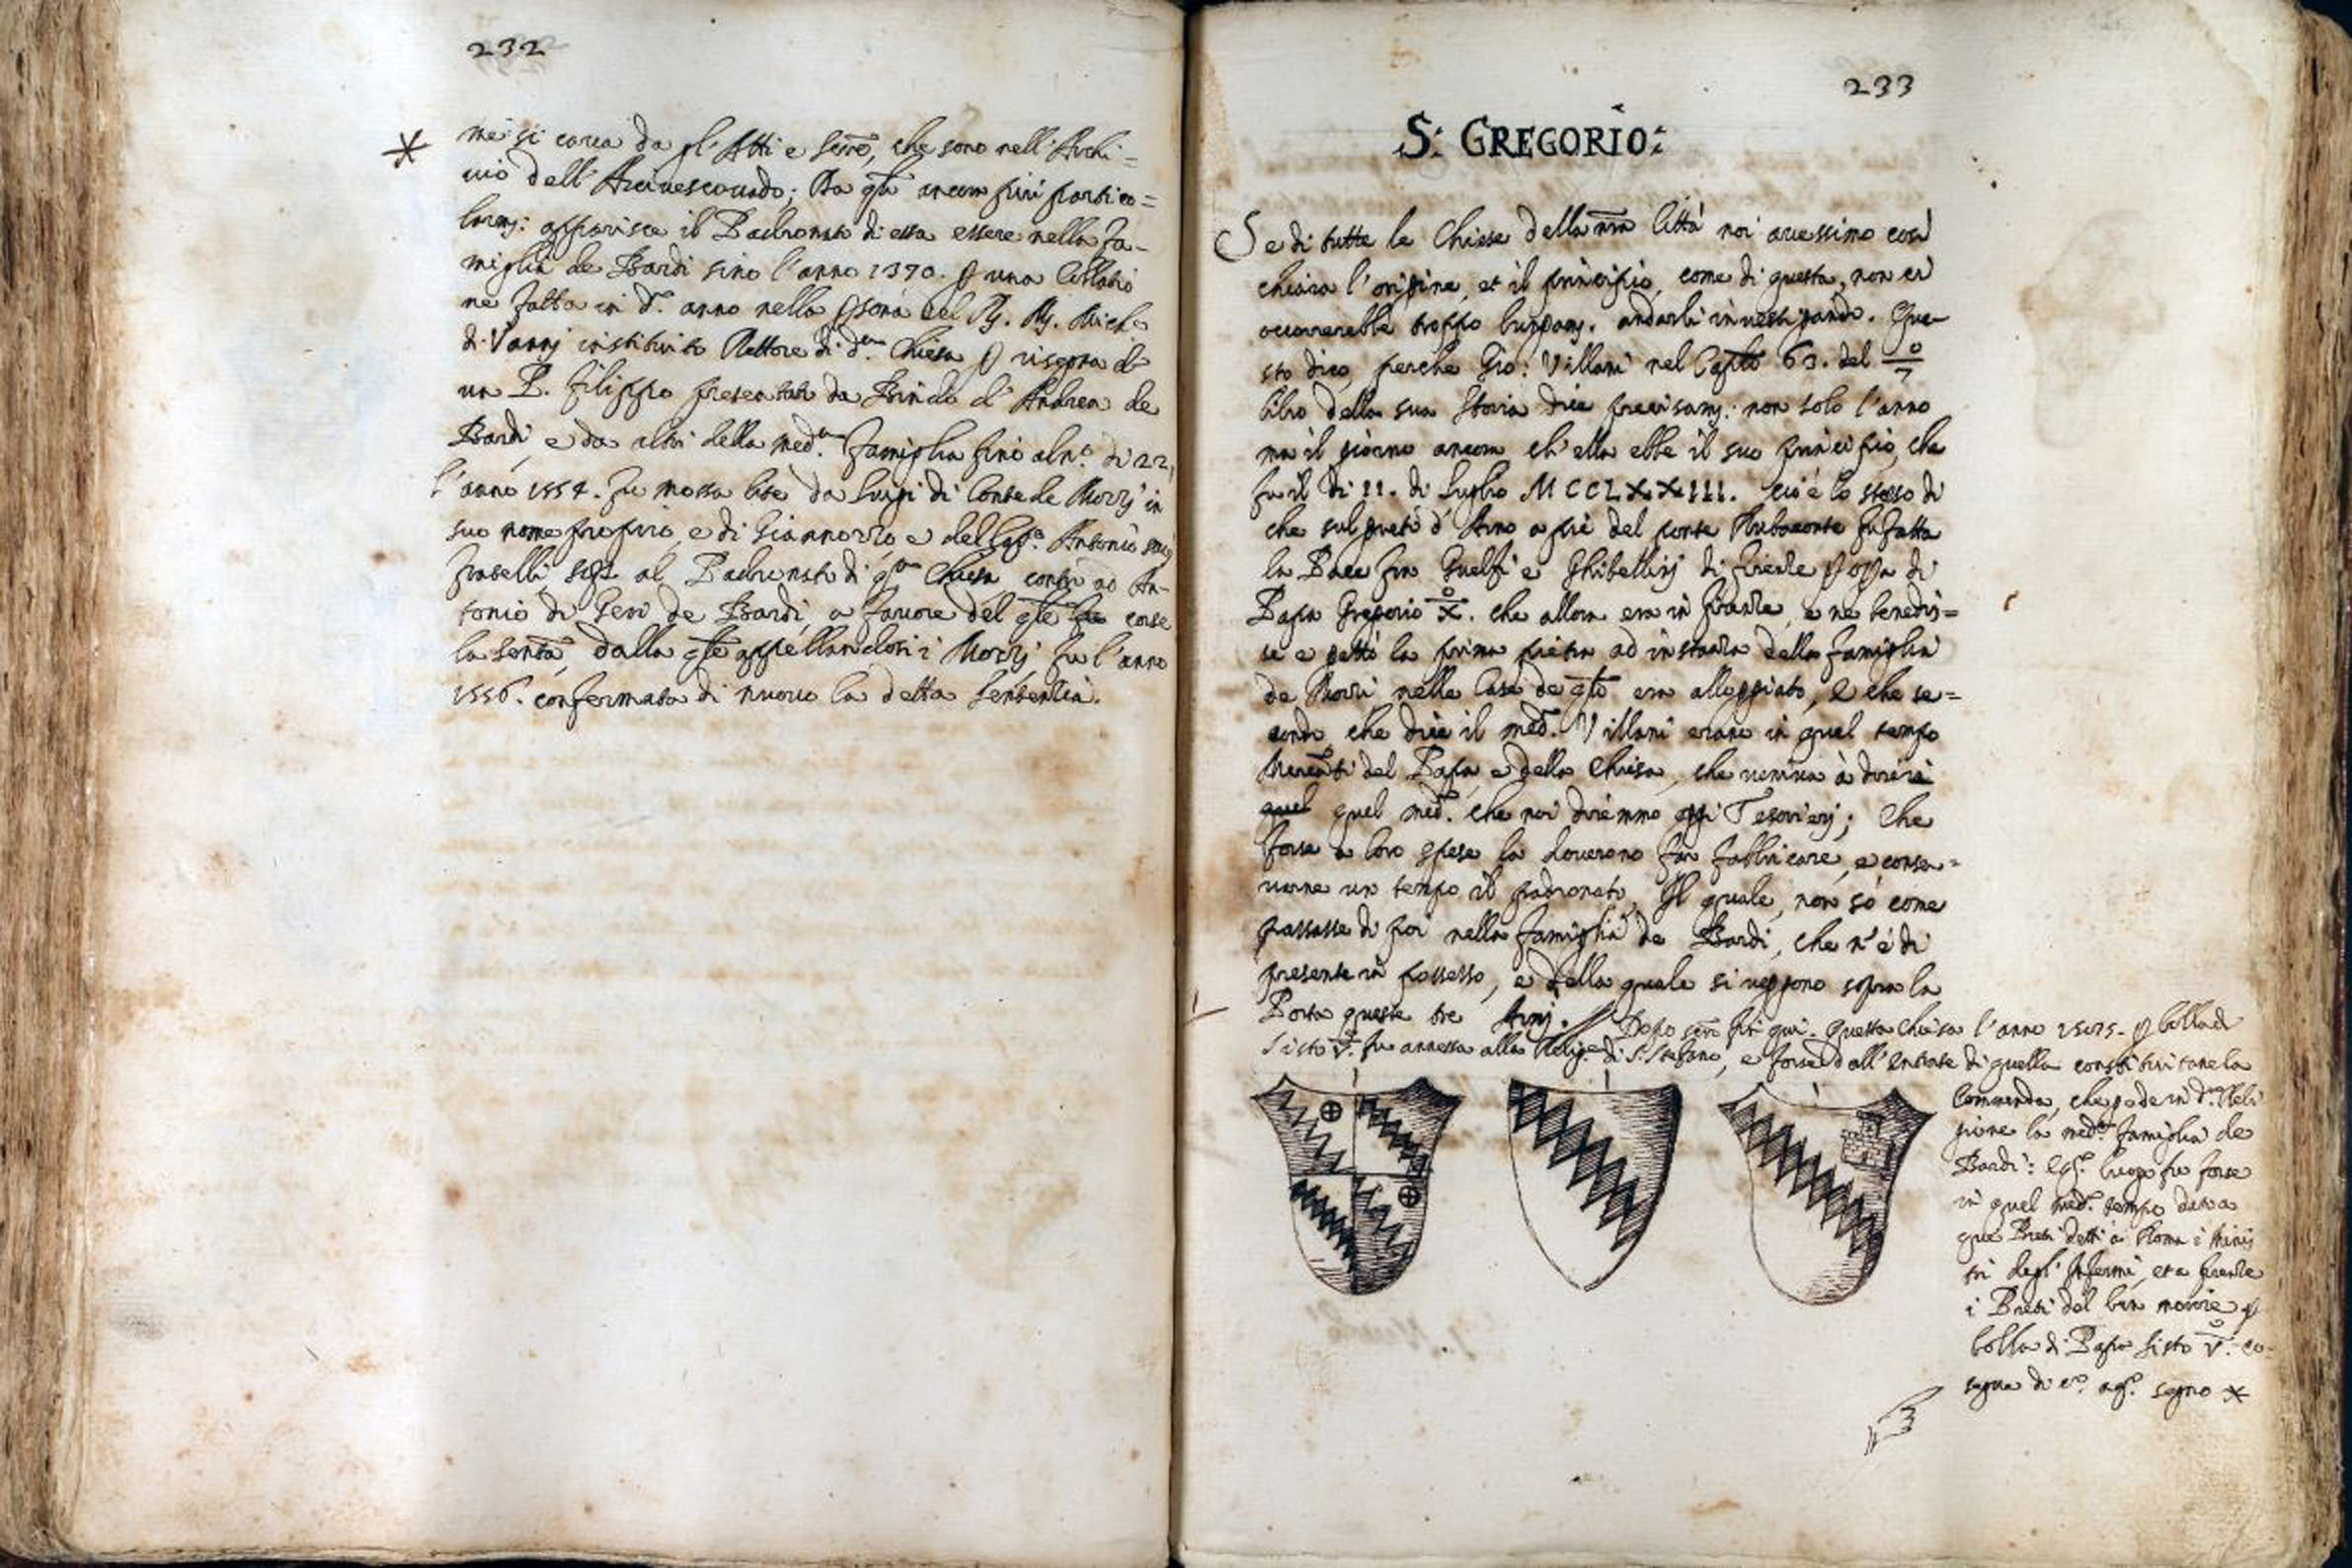 232
* me si cava da gl'Atti e Scrre, che sono nell'Archi=
vio dell'Arcivescovado; Da qli ancora più partico=
larmj: apparisce il Padronato di essa essere nella Fa-
miglia de Bardi sino l'anno 1370. p una Collatio
ne fatta in d.º anno nella psona del
di Vannj instituito Rettore di d.ª Chiesa p risegna di
un P. Filippo presentato da Bindo d'Andrea de
Bardi, e da altri della med.ª Famiglia fino al n.º di 22,
l'anno 1554. fu mossa lite da Luigi di Conte de Mozzj in
suo nome proprio, e di Giannozzo e del Cap.º Antonio suoj
fratelli sopra al Padronato di q.ta Chiesa contro ad An-
tonio di Geri de Bardi, a favore del qle corse
la sentza, dalla qle appellandosi i Mozzj fu l'anno
1556. confermata di nuovo la detta sentenzia.
233
S: GREGORIO:
Se di tutte le Chiese della nra Città noi avessimo così
chiara l'origine, et il principio, come di questa, non ci
occorrerebbe troppo lungamj. andarli investigando. Que-
sto dico, perche Gio: Villani nel Caplo 63. del 7º
libro della sua Storia dice precisamj: non solo l'anno
ma il giorno ancora ch'ella ebbe il suo principio, che
fu il di 11. di Luglio MCCLXXIII. cio è lo stesso di
che sul greto d'Arno a piè del ponte Rubaconte fu fatta
la Pace fra Guelfi e Ghibellinj di Firenze p opa di
Papa Gregorio Xº. che allora era in Firenze, e ne benedis=
se e gettò la prima pietra ad instanza della Famiglia
de Mozzi nelle Case de qli era alloggiato, e che se=
condo che dice il med.º Villani erano in quel tempo
Mercati del Papa e della Chiesa, che veniva à dire
quel quel med.º che noi diremmo oggi Tesorierj; Che
forse a loro spese la doverono far fabbricare, e conser=
varne un tempo il padronato, Il quale, non so come
passasse di poi nella Famiglia de Bardi, che n'è di
presente in possesso, e della quale si veggono sopra la
Porta queste tre Armj. // Dopo scro fin qui. Questa Chiesa l'anno 1585. p bolla di
Sisto Vº. fu annessa alla Relig.e di S. Stefano, e forse dall'entrate di quella constituirono la
Commenda, che gode in d.ª Reli
gione la med.ª famiglia de
Bardi: luogo fu forse
in quel med.º tempo dato a
que Preti detti a Roma i Minis
tri degl'Infermi, et a Firenze
i Preti del ben morire p
bolla di Papa Sisto Vº.
segno *